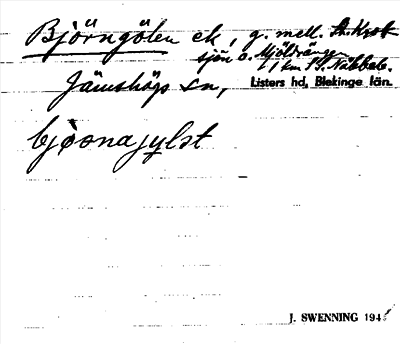 Björngölen ek, g. mell. St. Krok-
sjön o. Mjöldrången
1 km S
Jämshögs sn, Listers hd, Blekinge län.
bjonajylst
J. SWENNING 194